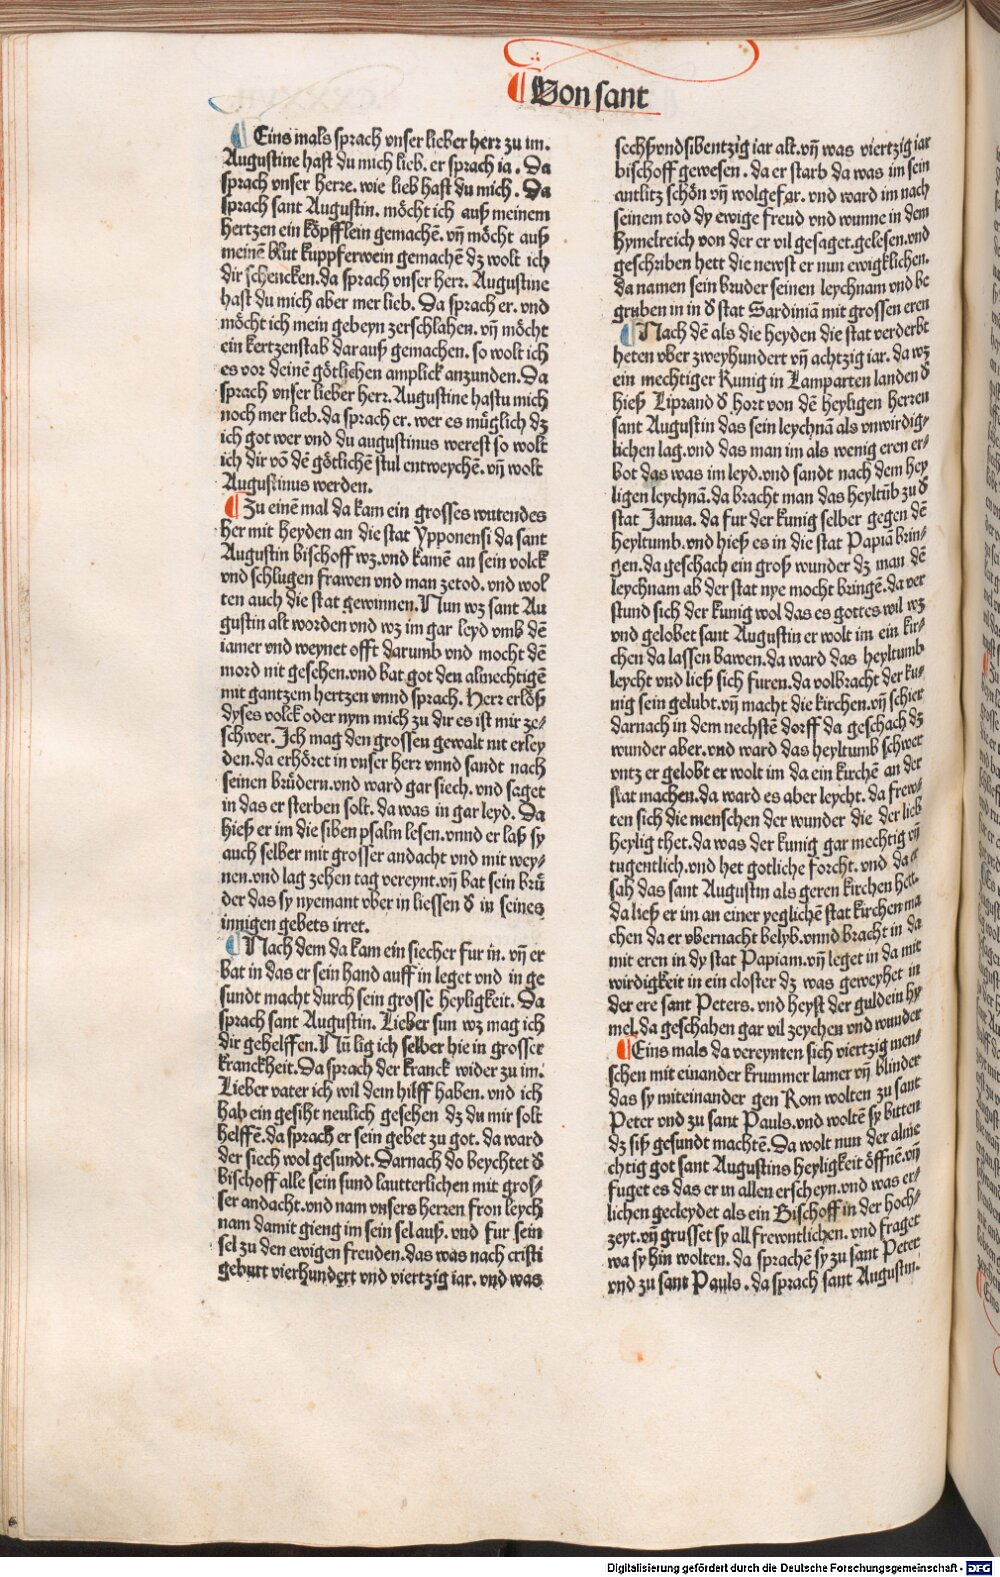 ¶ Von sant
¶ Eins mals sprach vnser lieber herr zu im.
Augustine hast du mich lieb. er sprach ia. Da
sprach vnser herre. wie lieb hast du mich. Da
sprach sant Augustin. möcht ich auß meinem
hertzen ein köpfflein gemachē. vñ möcht auß
meinē blut kuppferwein gemachē dz wolt ich
dir schencken. da sprach vnser herr. Augustine
hast du mich aber mer lieb. Da sprach er. vnd
möcht ich mein gebeyn zerschlahen. vñ möcht
ein kertzenstab darauß gemachen. so wolt ich
es vor deinē götlichen amplick anzunden. Da
sprach vnser lieber herr. Augustine hastu mich
noch mer lieb. da sprach er. wer es müglich dz
ich got wer vnd du augustinus werest so wolt
ich dir võ dē götlichē stul entweychē. vñ wolt
Augustinus werden.
¶ Zu einē mal da kam ein grosses wutendes
her mit heyden an die stat Ypponensi da sant
Augustin bischoff wz. vnd kamē an sein volck
vnd schlugen frawen vnd man zetod. vnd wol
ten auch die stat gewinnen. Nun wz sant Au
gustin alt worden vnd wz im gar leyd vmb dē
iamer vnd weynet offt darumb vnd mocht dē
mord nit gesehen. vnd bat got den almechtigē
mit gantzem hertzen vnnd sprach. Herr erlöß
dyses volck oder nym mich zu dir es ist mir ze⸗
schwer. Ich mag den grossen gewalt nit erley
den. da erhöret in vnser herr vnnd sandt nach
seinen brüdern. vnd ward gar siech. vnd saget
in das er sterben solt. da was in gar leyd. Da
hieß er im die siben psalm lesen. vnnd er laß sy
auch selber mit grosser andacht vnd mit wey⸗
nen. vnd lag zehen tag vereynt. vñ bat sein brü
der das sy nyemant vber in liessen d̄ in seines
innigen gebets irret.
¶ Nach dem da kam ein siecher fur in. vñ er
bat in das er sein hand auff in leget vnd in ge
sundt macht durch sein grosse heyligkeit. Da
sprach sant Augustin. Lieber sun wz mag ich
dir gehelffen. Nū lig ich selber hie in grosser
kranckheit. Da sprach der kranck wider zu im.
Lieber vater ich wil dein hilff haben. vnd ich
hab ein gesiht neulich gesehen dz du mir solt
helffē. da sprach er sein gebet zu got. da ward
der siech wol gesundt. Darnach do beychtet d̄
bischoff alle sein sund lautterlichen mit gros⸗
ser andacht. vnd nam vnsers herren fron leych
nam damit gieng im sein sel auß. vnd fur sein
sel zu den ewigen freuden. das was nach cristi
geburt vierhundert vnd viertzig iar. vnd was
sechßvndsibentzig iar alt. vñ was viertzig iar
bischoff gewesen. da er starb da was im sein
antlitz schön vñ wolgefar. vnd ward im nach
seinem tod dy ewige freud vnd wunne in dem
hymelreich von der er vil gesaget. gelesen. vnd
geschriben hett die newst er nun ewigklichen.
da namen sein bruder seinen leychnam vnd be
gruben in in d̄ stat Sardiniā mit grossen eren
¶ Nach dē als die heyden die stat verderbt
heten vber zweyhundert vñ achtzig iar. da wz
ein mechtiger Kunig in Lamparten landen d̄
hieß Liprand d̄ hort von dē heyligen herren
sant Augustin das sein leychnā als vnwirdig⸗
lichen lag. vnd das man im als wenig eren er⸗
bot das was im leyd. vnd sandt nach dem hey
ligen leychnā. da bracht man das heyltūb zu d̄
stat Janua. da fur der kunig selber gegen dē
heyltumb. vnd hieß es in die stat Papiā brin⸗
gen. da geschach ein groß wunder dz man dē
leychnam ab der stat nye mocht bringē. da ver
stund sich der kunig wol das es gottes wil wz
vnd gelobet sant Augustin er wolt im ein kir⸗
chen da lassen bawen. da ward das heyltumb
leycht vnd ließ sich furen. da volbracht der ku⸗
nig sein gelubt. vñ macht die kirchen. vñ schier
darnach in dem nechstē dorff da geschach dz
wunder aber. vnd ward das heyltumb schwer
vntz er gelobt er wolt im da ein kirchē an der
stat machen. da ward es aber leycht. da frew⸗
ten sich die menschen der wunder die der lieb
heylig thet. da was der kunig gar mechtig vñ
tugentlich. vnd het gotliche forcht. vnd da er
sah das sant Augustin als geren kirchen hett.
da ließ er im an einer yeglichē stat kirchen ma
chen da er vbernacht belyb. vnnd bracht in da
mit eren in dy stat Papiam. vñ leget in da mit
wirdigkeit in ein closter dz was geweyhet in
der ere sant Peters. vnd heyst der guldein hy
mel. da geschahen gar vil zeychen vnd wunder
¶ Eins mals da vereynten sich viertzig men⸗
schen mit einander krummer lamer vñ blinder
das sy miteinander gen Rom wolten zu sant
Peter vnd zu sant Pauls. vnd woltē sy bitten
dz siß gesundt machtē. Da wolt nun der alme
chtig got sant Augustins heyligkeit öffnē. vñ
fuget es das er in allen erscheyn. vnd was er⸗
lichen gecleydet als ein Bischoff in der hoch⸗
zeyt. vñ grusset sy all frewntlichen. vnd fraget
wa sy hin wolten. da sprachē sy zu sant Peter
vnd zu sant Pauls. da sprach sant Augustin.
Digitalisierung gefördert durch die Deutsche Forschungsgemeinschaft - DFG